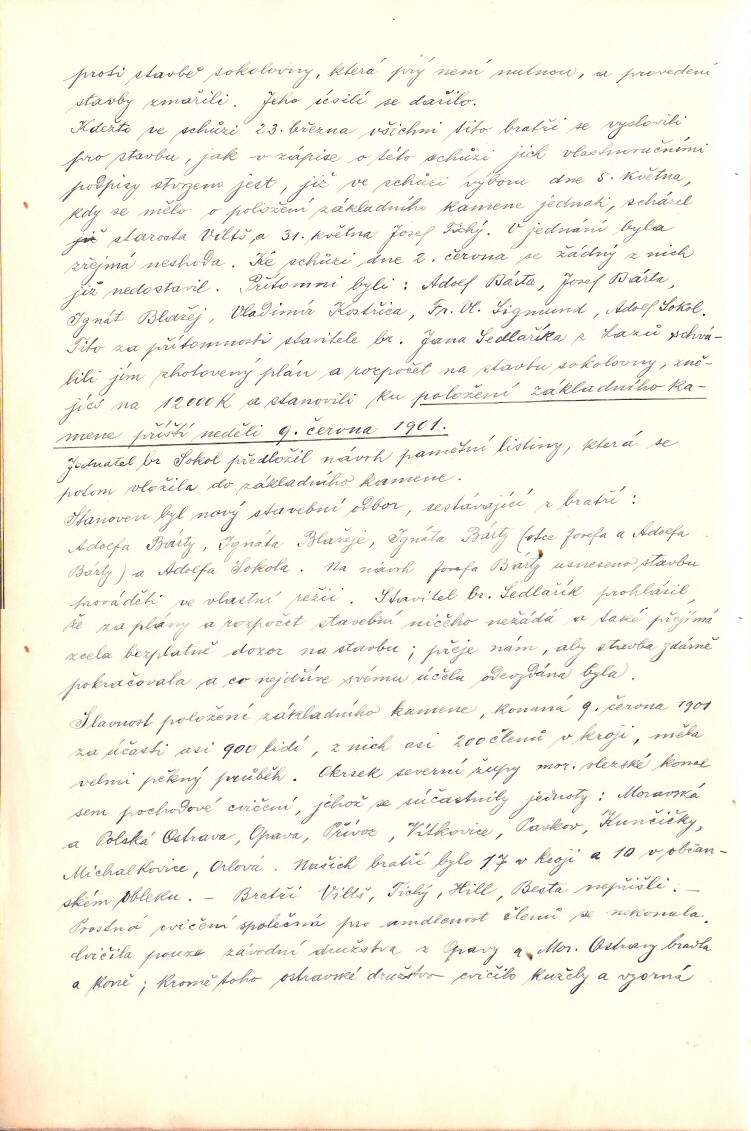 proti stavbě sokolovny, která prý není nutnou, a provedení
stavby zmařili. Jeho úsilí se dařilo.
Kdežto ve schůzi 23. března všichni tito bratři se vyslovili
pro stavbu, jak v zápise o této schůzi jich vlastnoručními
podpisy stvrzem jest, již ve schůzi výboru dne 5. května,
kdy se mělo o položení základního kamene jednati, scházel
již starosta Viltš a 31. května Josef Tichý. V jednání byla
zřejmá neshoda. Ke schůzi dne 2. června se žádný z nich
již nedostavil. Přítomni byli: Adolf Bárta, Josef Bárta,
Ignát Blažej, Vladimír Kostřica, Fr. Vl. Sigmund, Adolf Sokol.
Tito za přítomnosti stavitele br. Jana Sedlaříka z Lazů schvá-
lili jím zhotovený plán a rozpočet na stavbu sokolovny, zně-
jící na 12000 K a stanovili ku položení základního ka-
mene příští neděli 9. června 1901.
Jednatel br Sokol předložil návrh pamětní listiny, která se
potom vložila do základního kamene.
Stanoven byl nový stavební odbor, sestávající z bratří:
Adolfa Bárty, Ignáta Blažeje, Ignáta Bárty (otce Josefa a Adolfa
Bárty) a Adolfa Sokola. Na návrh Josefa Bárty usneseno stavbu
prováděti ve vlastní režii. Stavitel br. Sedlařík prohlásil,
že za plány a rozpočet stavební ničeho nežádá a také přijímá
zcela bezplatně dozor na stavbu; přeje nám, aby stavba zdárně
pokračovala a co nejdříve svému účelu odevzdána byla.
Slavnost položení základního kamene, konaná 9. června 1901
za účasti asi 900 lidí, z nich asi 200 členů v kroji, měla
velmi pěkný průběh. Okrsek severní župy mor. slezské konal
sem pochodové cvičení, jehož se súčastnily jednoty: Moravská
a Polská Ostrava, Opava, Přívoz, Vítkovice, Paskov, Kunčičky,
Michalkovice, Orlová. Našich bratří bylo 17 v kroji a 10 v občan-
ském obleku. – Bratři Viltš, Tichý, Hill, Besta nepřišli. –
Prostná cvičení společná pro umdlenost členů se nekonala.
Cvičila pouze závodní družstva z Opavy a Mor. Ostravy bradla
a koně; kromě toho ostravské družstvo cvičilo kužely a vzorná